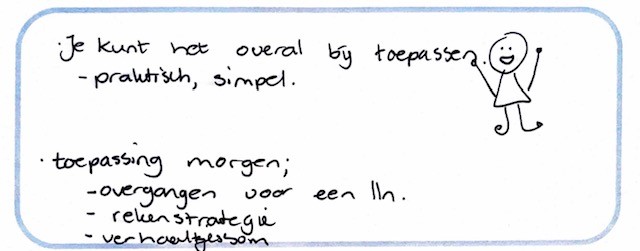 · Je kunt het overal bij toepassen.
- praktisch, simpel.
· toepassing morgen;
- overgangen voor een lln.
- rekenstrategie
- verhaaltjessom